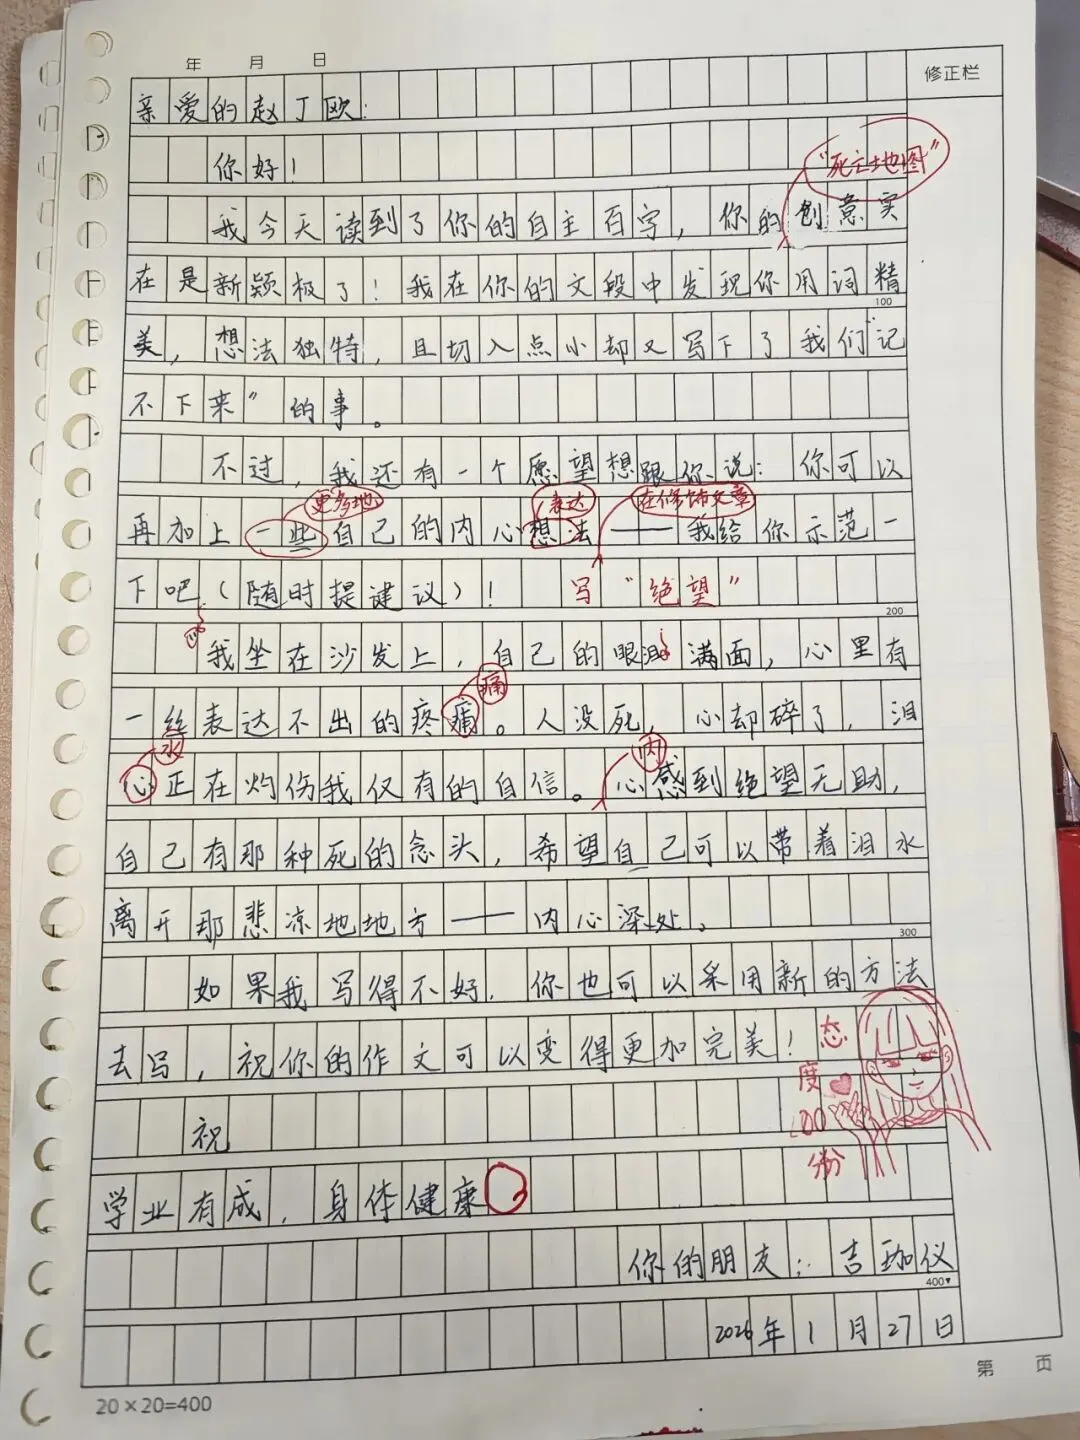 年 月 日
修正栏
亲爱的赵丁欧:
你好!
"死亡地图"
我今天读到了你的自主百字,你的创意实
在是新颖极了!我在你的文段中发现你用词精
100
美,想法独特,且切入点小却又写下了我们"记
不下来"的事。
不过,我还有一个愿望想跟你说:你可以
更多地 表达 在修饰文章
再加上一些自己的内心想法——我给你示范一
下吧(随时提建议)! 写"绝望"
200
我坐在沙发上,自己的眼泪满面,心里有
痛
一丝表达不出的疼痛。人没死,心却碎了,泪
水 内
心正在灼伤我仅有的自信。心感到绝望无助,
自己有那种死的念头,希望自己可以带着泪水
离开那悲凉地地方——内心深处。
300
如果我写得不好,你也可以采用新的方法
去写,祝你的作文可以变得更加完美!
态
度
100
分
祝
学业有成,身体健康
你的朋友:吉珈仪
400
2026年1月27日
第 页
20×20=400